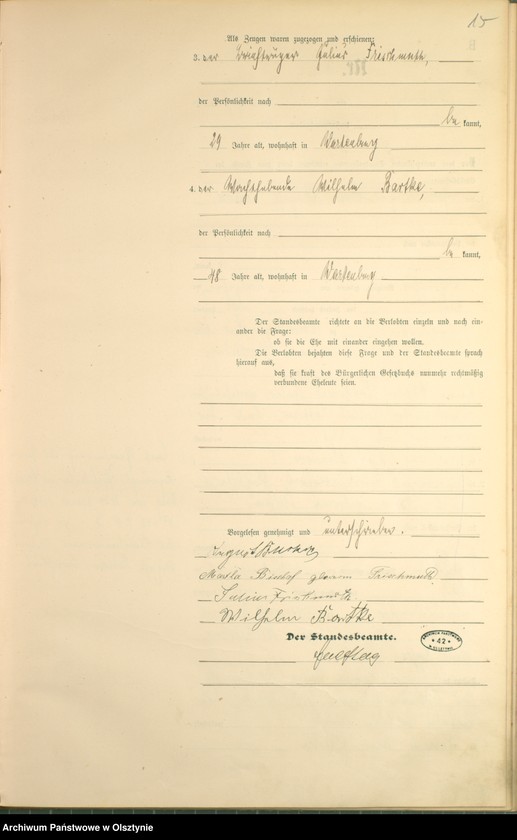 15
Als Zeugen waren zugezogen und erschienen:
3. der Julius Frischmuth,
der Persönlichkeit nach
be kannt,
29 Jahre alt, wohnhaft in Wartenburg
4. der Wilhelm Bartke,
der Persönlichkeit nach
be kannt,
48 Jahre alt, wohnhaft in Wartenburg
Der Standesbeamte richtete an die Verlobten einzeln und nach ein-
ander die Frage:
ob sie die Ehe mit einander eingehen wollen.
Die Verlobten bejahten diese Frage und der Standesbeamte sprach
hierauf aus,
daß sie kraft des Bürgerlichen Gesetzbuchs nunmehr rechtmäßig
verbundene Eheleute seien.
Vorgelesen genehmigt und unterschrieben.
August
geboren Frischmuth
Julius Frischmuth
Wilhelm Bartke
Der Standesbeamte.
ARCHIWUM PAŃSTWOWE
* 42 *
W OLSZTYNIE
Archiwum Państwowe w Olsztynie